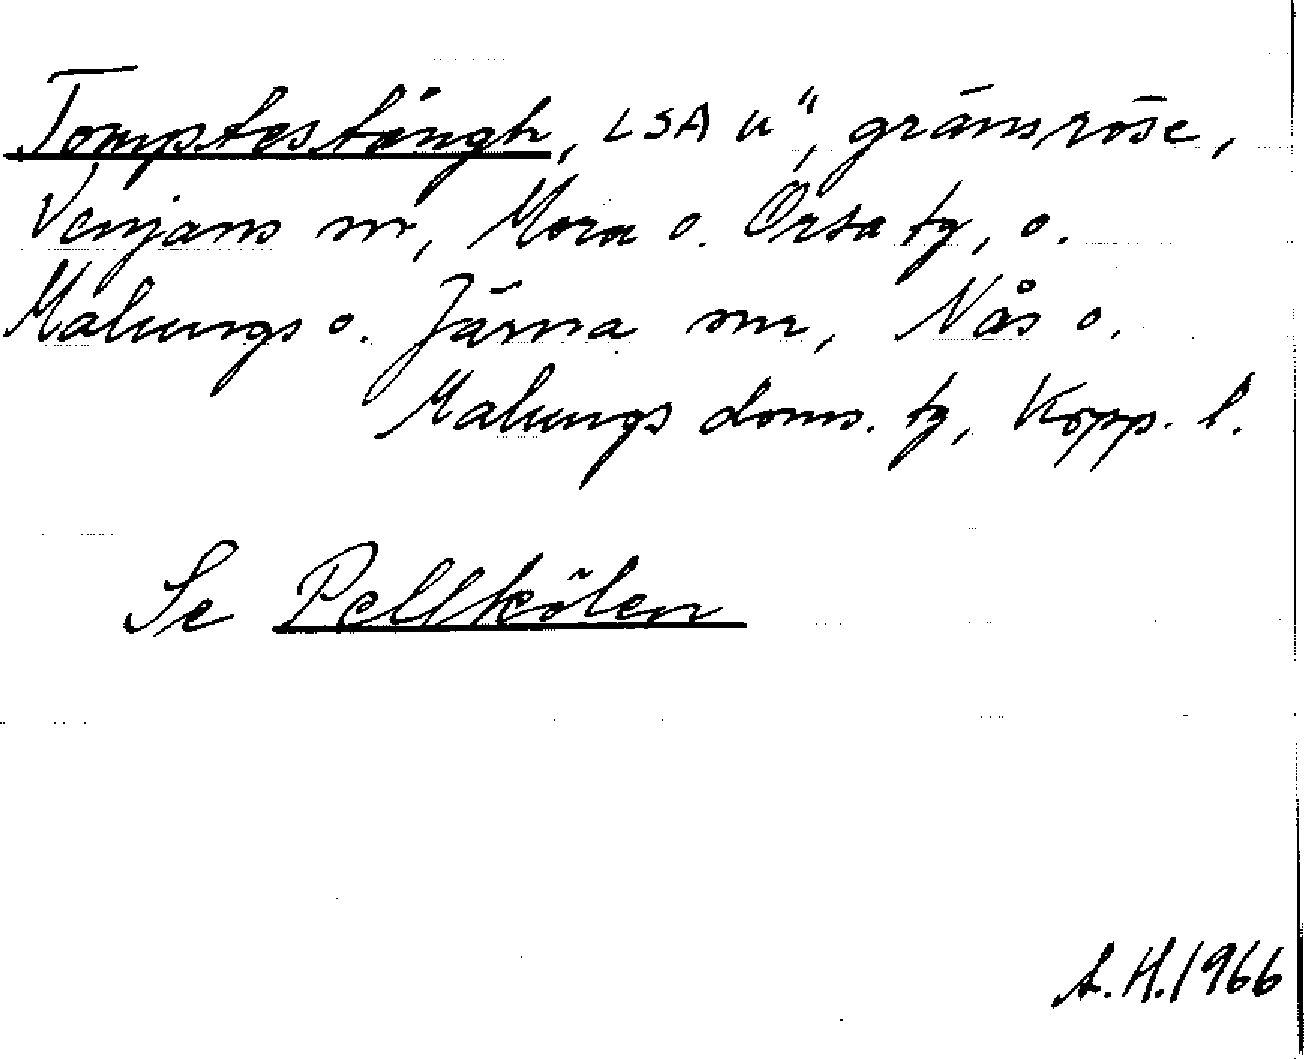 Tomptestångh, LSA u", gränsröse,
Venjans sn, Mora o. Orsa tg, o.
Malungs o. Järna snr, Nås o.
Malungs doms. tg, Kopp. l.
Se Pellkölen
A.H.1966